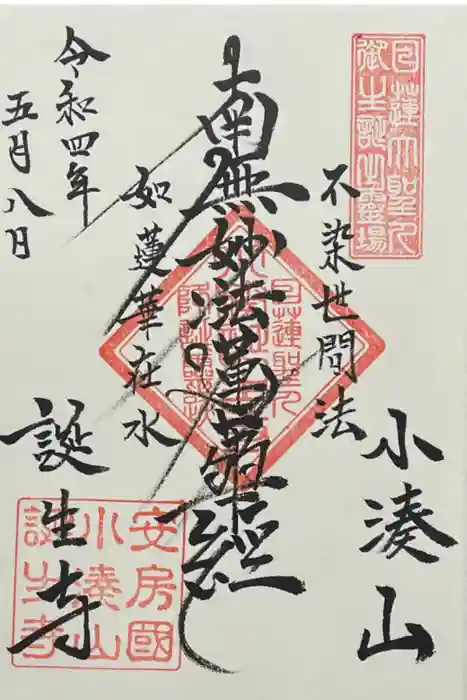 日蓮大聖人
御生誕生靈場
小湊山
不染世間法
南無妙法蓮華経
如蓮華在水
誕生寺
令和四年
五月八日
日蓮聖人
安房國
小湊山
誕生寺